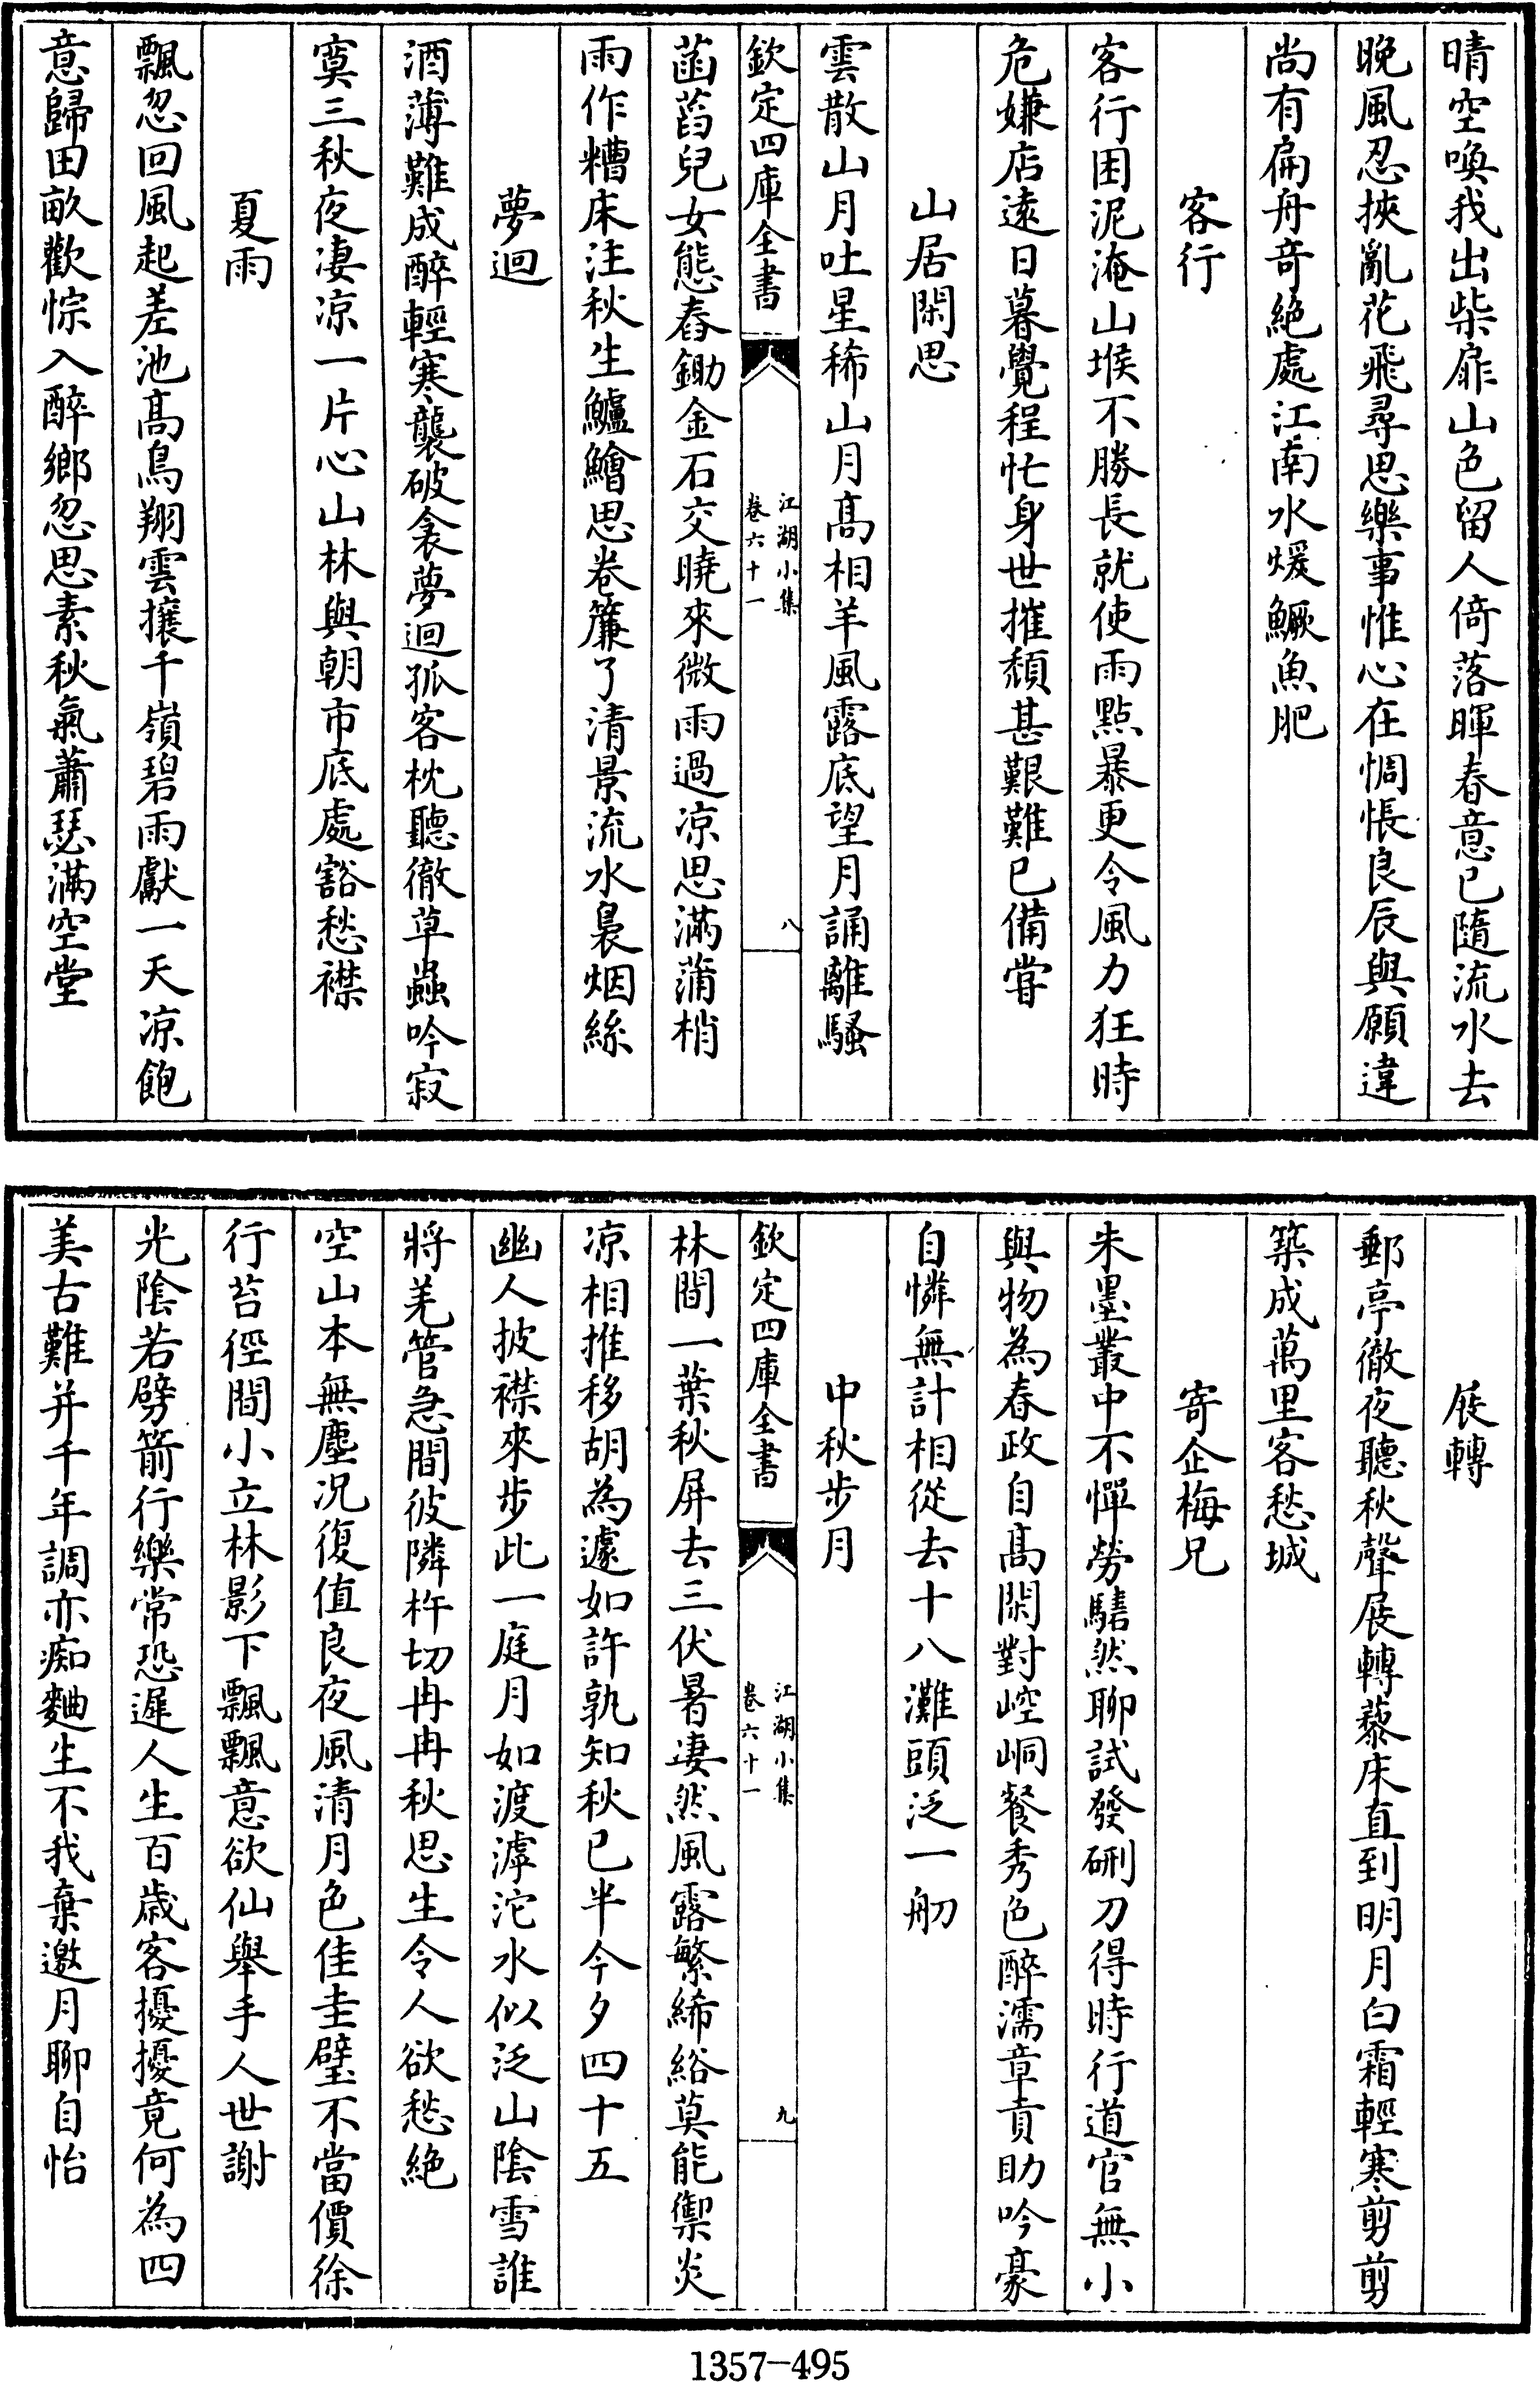 晴空喚我出柴扉山色留人倚落暉春意已隨流水去
晚風忍挾亂花飛尋思樂事惟心在惆悵良辰與願違
尚有扁舟奇絶處江南水煖鱖魚肥
客行
客行困泥淹山堠不勝長就使雨點暴更令風力狂時
危嫌店逺日暮覺程忙身世摧頹甚艱難已備嘗
山居閑思
雲散山月吐星稀山月髙相羊風露底望月誦離騷
欽定四庫全書
江湖小集
卷六十一
八
菡萏兒女態舂鋤金石交曉來微雨過凉思滿蒲梢
雨作糟床注秋生鱸鱠思卷簾了清景流水裊烟絲
夢迴
酒薄難成醉輕寒襲破衾夢迴孤客枕聽徹草蟲吟寂
寞三秋夜凄凉一片心山林與朝市底處豁愁襟
夏雨
飄忽回風起差池髙鳥翔雲攘千嶺碧雨獻一天凉飽
意歸田畝歡悰入醉鄉忽思素秋氣蕭瑟滿空堂
展轉
郵亭徹夜聽秋聲展轉藜床直到明月白霜輕寒剪剪
築成萬里客愁城
寄企梅兄
朱墨叢中不憚勞騞然聊試發硎刀得時行道官無小
與物為春政自髙閑對崆峒餐秀色醉濡章貢助吟豪
自憐無計相從去十八灘頭泛一舠
中秋步月
欽定四庫全書
江湖小集
卷六十一
九
林間一葉秋屏去三伏暑凄然風露繁絺綌莫能禦炎
凉相推移胡為遽如許孰知秋已半今夕四十五
幽人披襟來步此一庭月如渡滹沱水似泛山陰雪誰
將羌管急間彼隣杵切冉冉秋思生令人欲愁絶
空山本無塵况復值良夜風清月色佳圭璧不當價徐
行苔徑間小立林影下飄飄意欲仙舉手人世謝
光陰若劈箭行樂常恐遲人生百歲客擾擾竟何為四
美古難并千年調亦痴麯生不我棄邀月聊自怡
1357-495